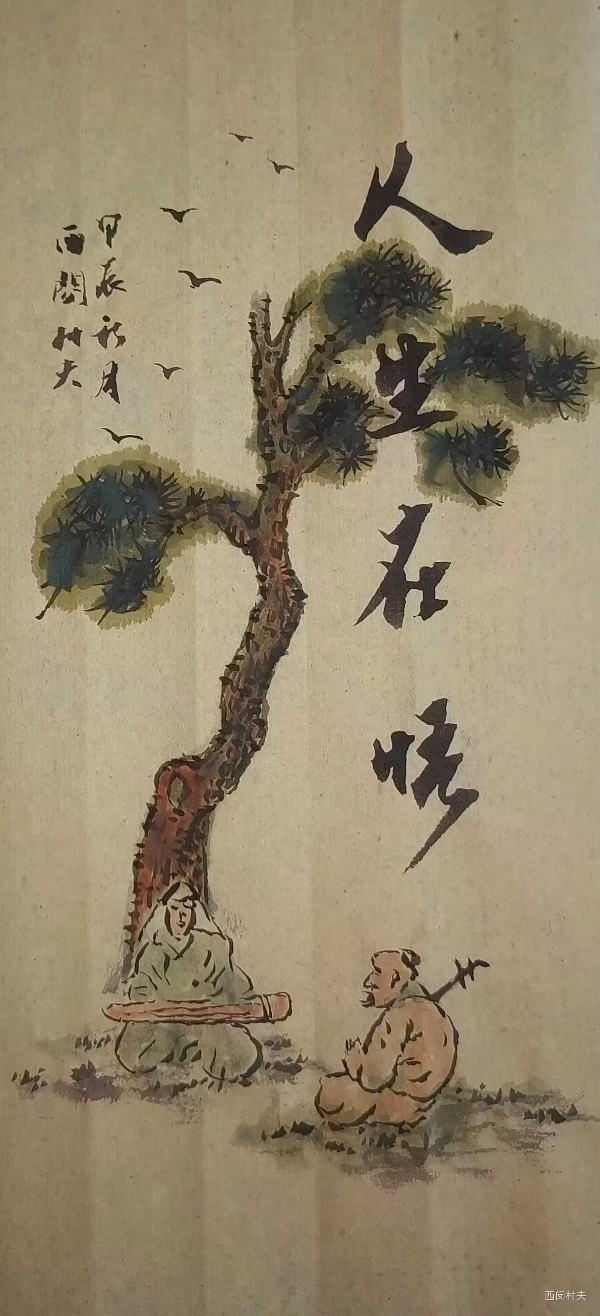 人生在悟
甲辰秋月
西閩村夫
西闵村夫